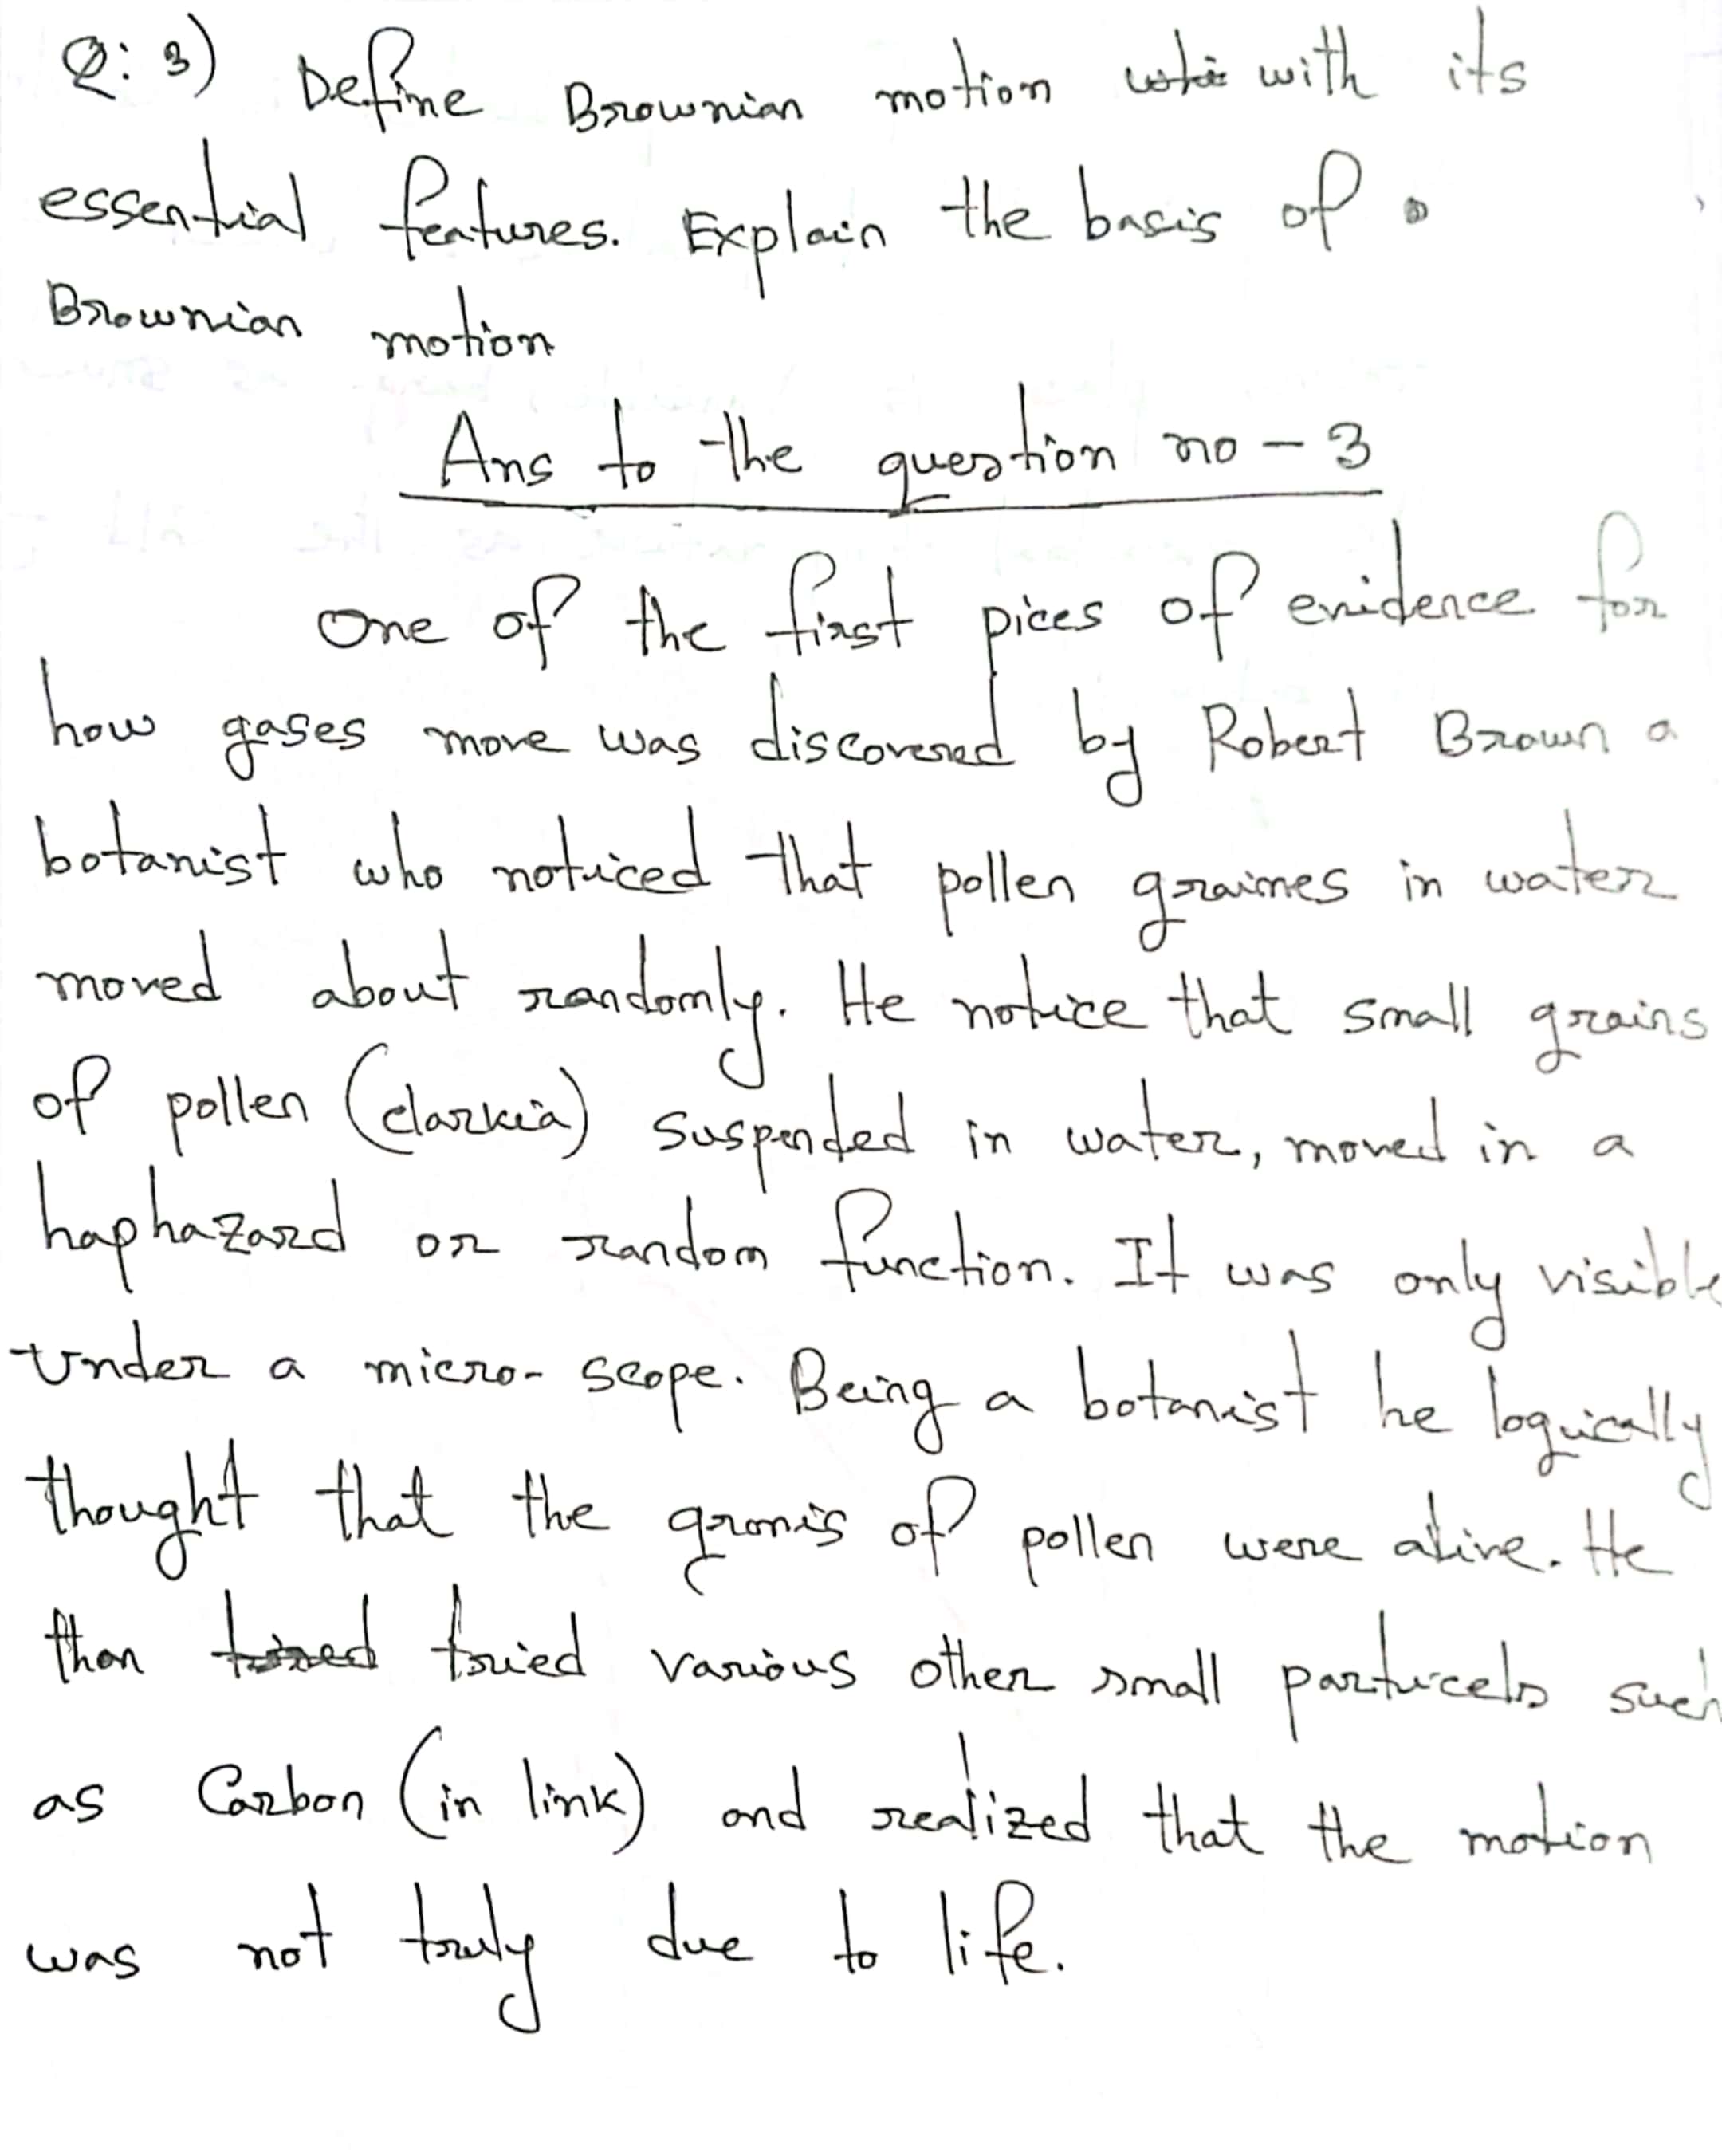 Q: 3) Define Brownian motion with its
essential features. Explain the basis of
Brownian motion
Ans to the question no - 3
One of the first pices of evidence for
how gases move was discovered by Robert Brown a
botanist who noticed that pollen graines in water
moved about randomly. He notice that small grains
of pollen (clarkia) suspended in water, moved in a
haphazard or random function. It was only visible
Under a micro-scope. Being a botanist he logically
thought that the gronis of pollen were alive. He
than tried various other small particels such
as Carbon (in link) and realized that the motion
was not truly due to life.